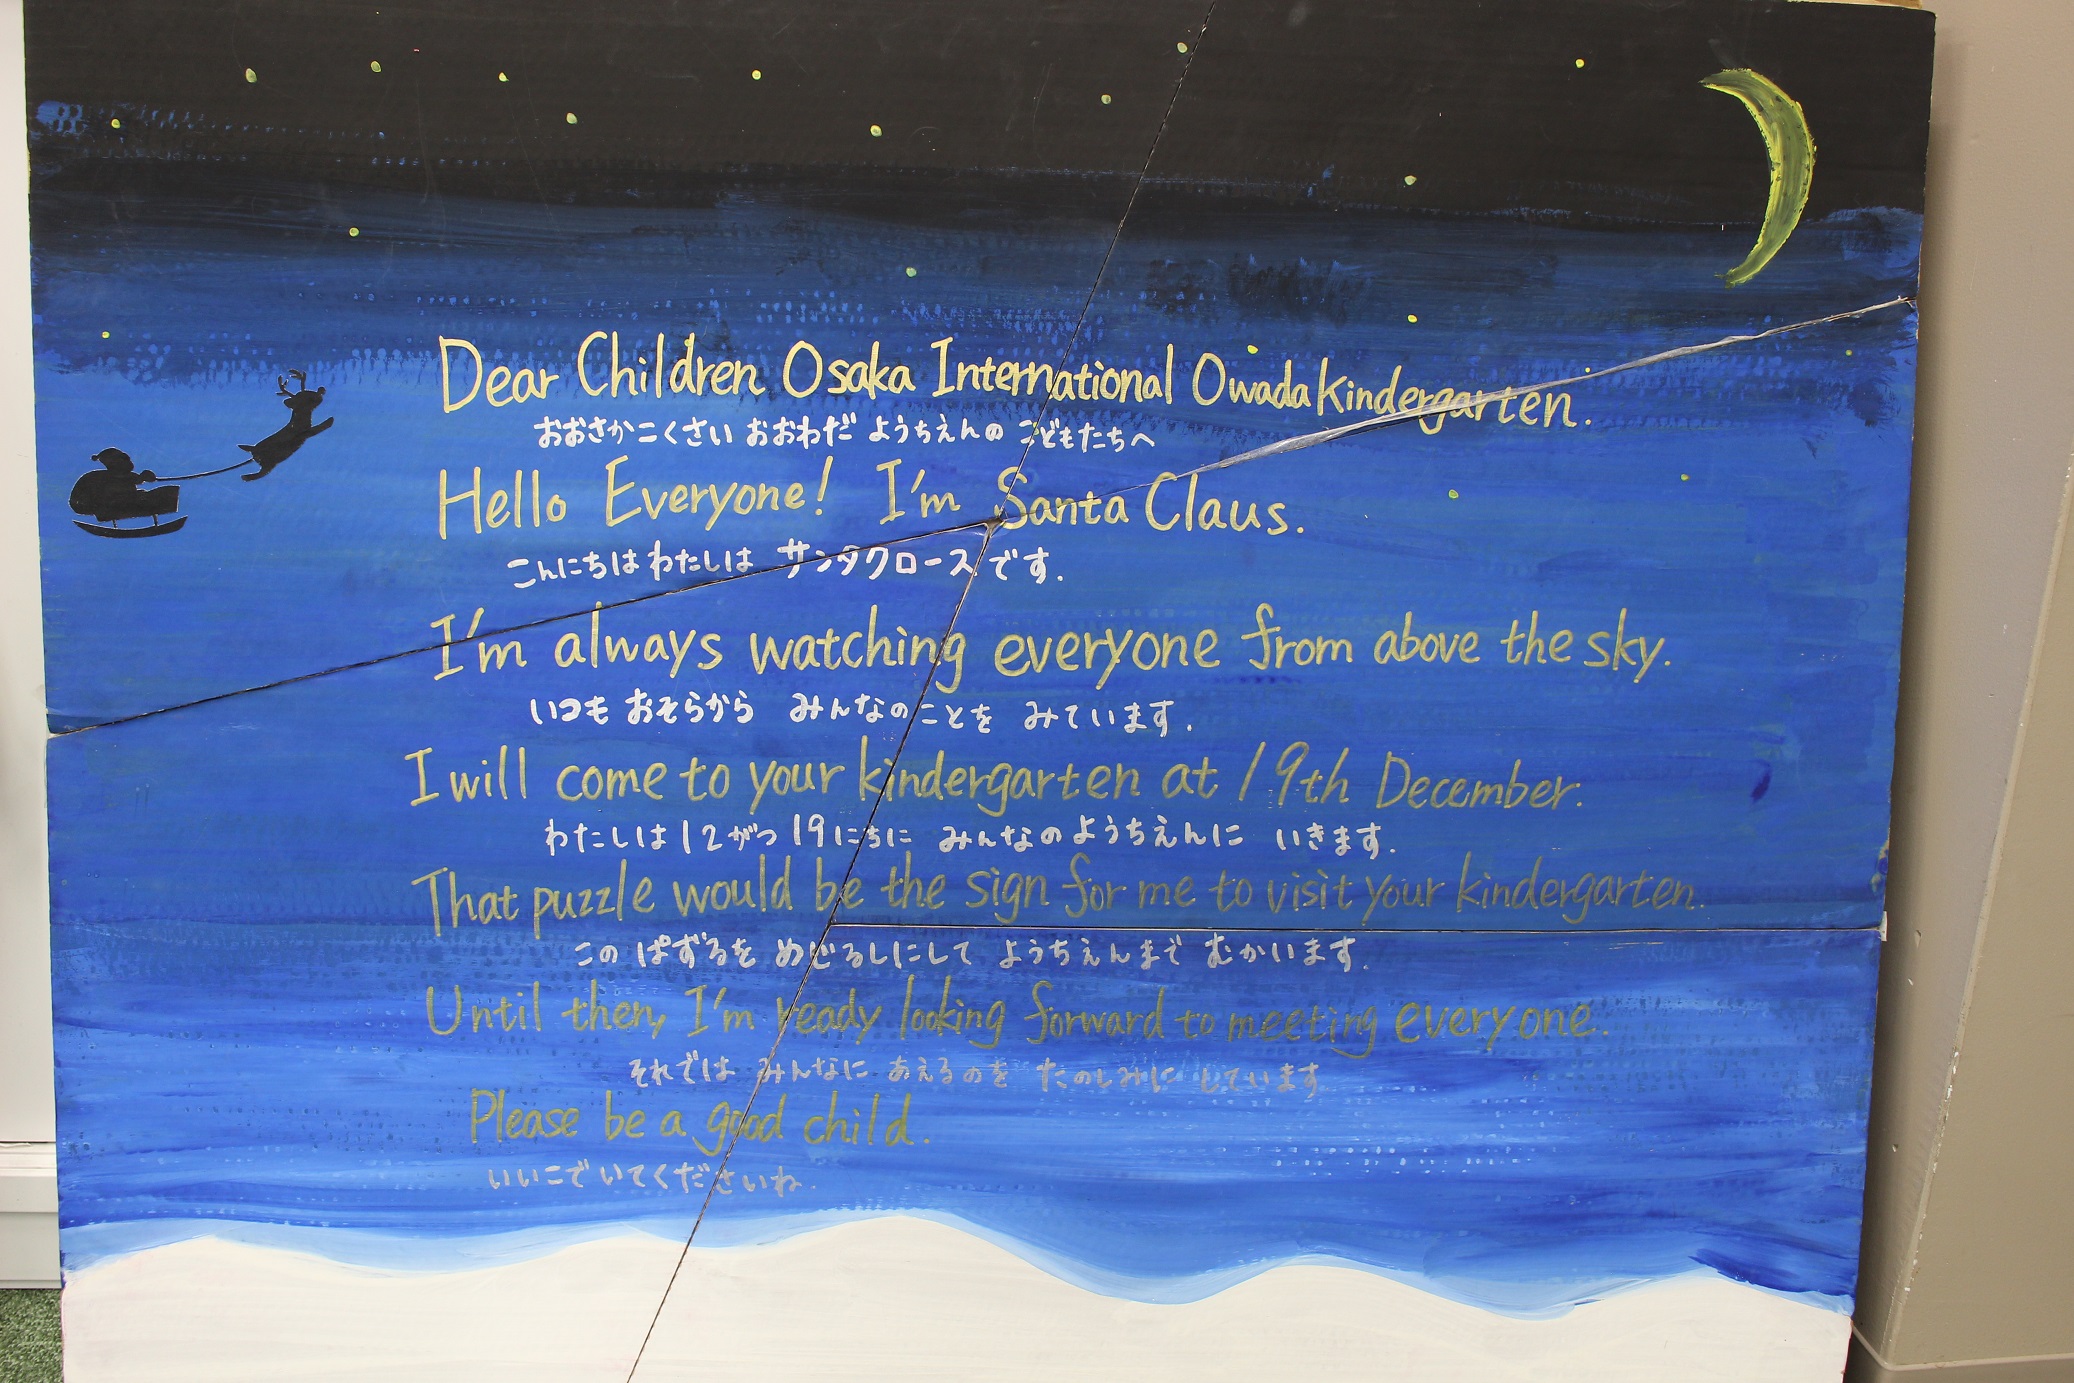 Dear Children Osaka International Owada Kindergarten.
おおさかこくさい おおわだ ようちえんの こどもたちへ
Hello Everyone! I'm Santa Claus.
こんにちは わたしは サンタクロース です.
I'm always watching everyone from above the sky.
いつも おそらから みんなの ことを みています.
I will come to your kindergarten at 19th December.
わたしは 12がつ 19にちに みんなの ようちえんに いきます.
That puzzle would be the sign for me to visit your kindergarten.
この ぱずるを めじるしにして ようちえんまで むかいます.
Until then, I'm ready looking forward to meeting everyone.
それでは みんなに あえるのを たのしみに しています
Please be a good child.
いいこで いてくださいね.